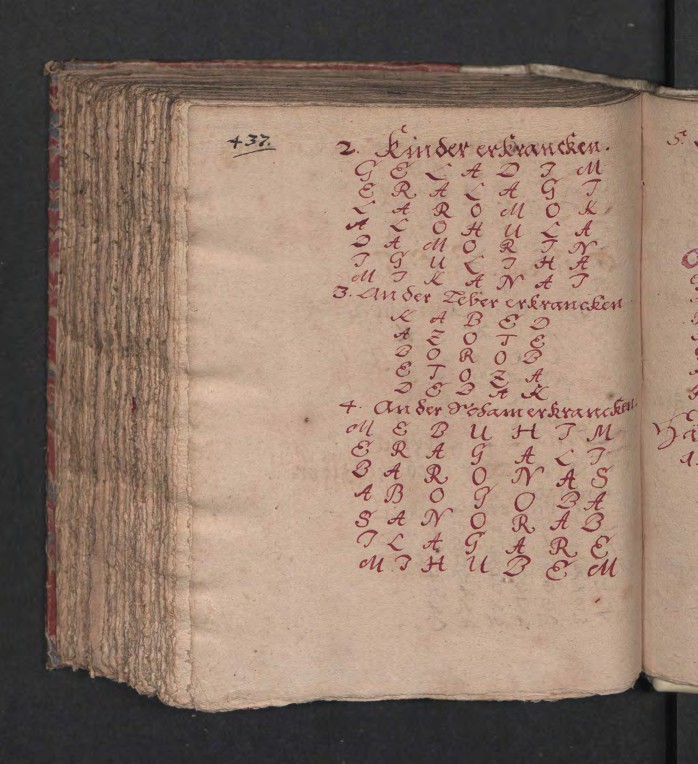 437.
2. Kinder erkrancken.
G E L A D I M
E R A L A G I
L A R O M O K
A L O H U L A
D A M O R I N
I G U L I H A
M I K A N A I
3. An der Leber erkrancken
K A B E D
A Z O T E
B O R O B
E T O Z A
D E B A K
4. An der Scham erkrancken.
M E B U H I M
E R A G A L I
B A R O N A S
A B O G O B A
S A N O R A B
I L A G A R E
M I H U B E M